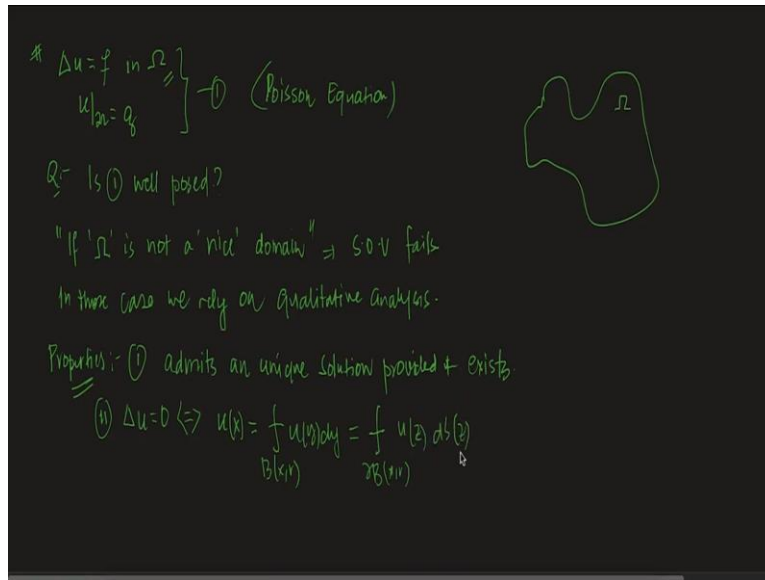 # Δu = f in Ω
u|∂Ω = g } - ① (Poisson Equation)
Ω
Q:- Is ① well posed?
"If 'Ω' is not a 'nice' domain" ⇒ S.O.V fails
In those case we rely on Qualitative Analysis.
Properties:- ① admits an unique solution provided it exists.
⑪ Δu=0 <=> u(x) = ⨍ u(y)dy = ⨍ u(z) ds(z)
B(x,r) ∂B(x,r)